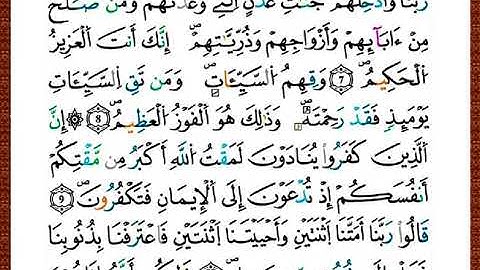 رَبَّنَا وَأَدْخِلْهُمْ جَنَّٰتِ عَدْنٍ اِلَّتِے وَعَدتَّهُمْ وَمَن صَلَحَ
مِنْ ءَابَآئِهِمْ وَأَزْوَٰجِهِمْ وَذُرِّيَّٰتِهِمْ إِنَّكَ أَنتَ اَلْعَزِيزُ
اُلْحَكِيمُ 7 وَقِهِمُ اُلسَّيِّـَٔاتِ وَمَن تَقِ اِلسَّيِّـَٔاتِ
يَوْمَئِذٖ فَقَدْ رَحِمْتَهُۥ وَذَٰلِكَ هُوَ اَلْفَوْزُ اُلْعَظِيمُ 8 ۞ إِنَّ
اَلَّذِينَ كَفَرُواْ يُنَادَوْنَ لَمَقْتُ اُللَّهِ أَكْبَرُ مِن مَّقْتِكُمْ
أَنفُسَكُمْ إِذْ تُدْعَوْنَ إِلَى اَلْإِيمَٰنِ فَتَكْفُرُونَ 9
قَالُواْ رَبَّنَا أَمَتَّنَا اَثْنَتَيْنِ وَأَحْيَيْتَنَا اَثْنَتَيْنِ فَاعْتَرَفْنَا بِذُنُوبِنَا